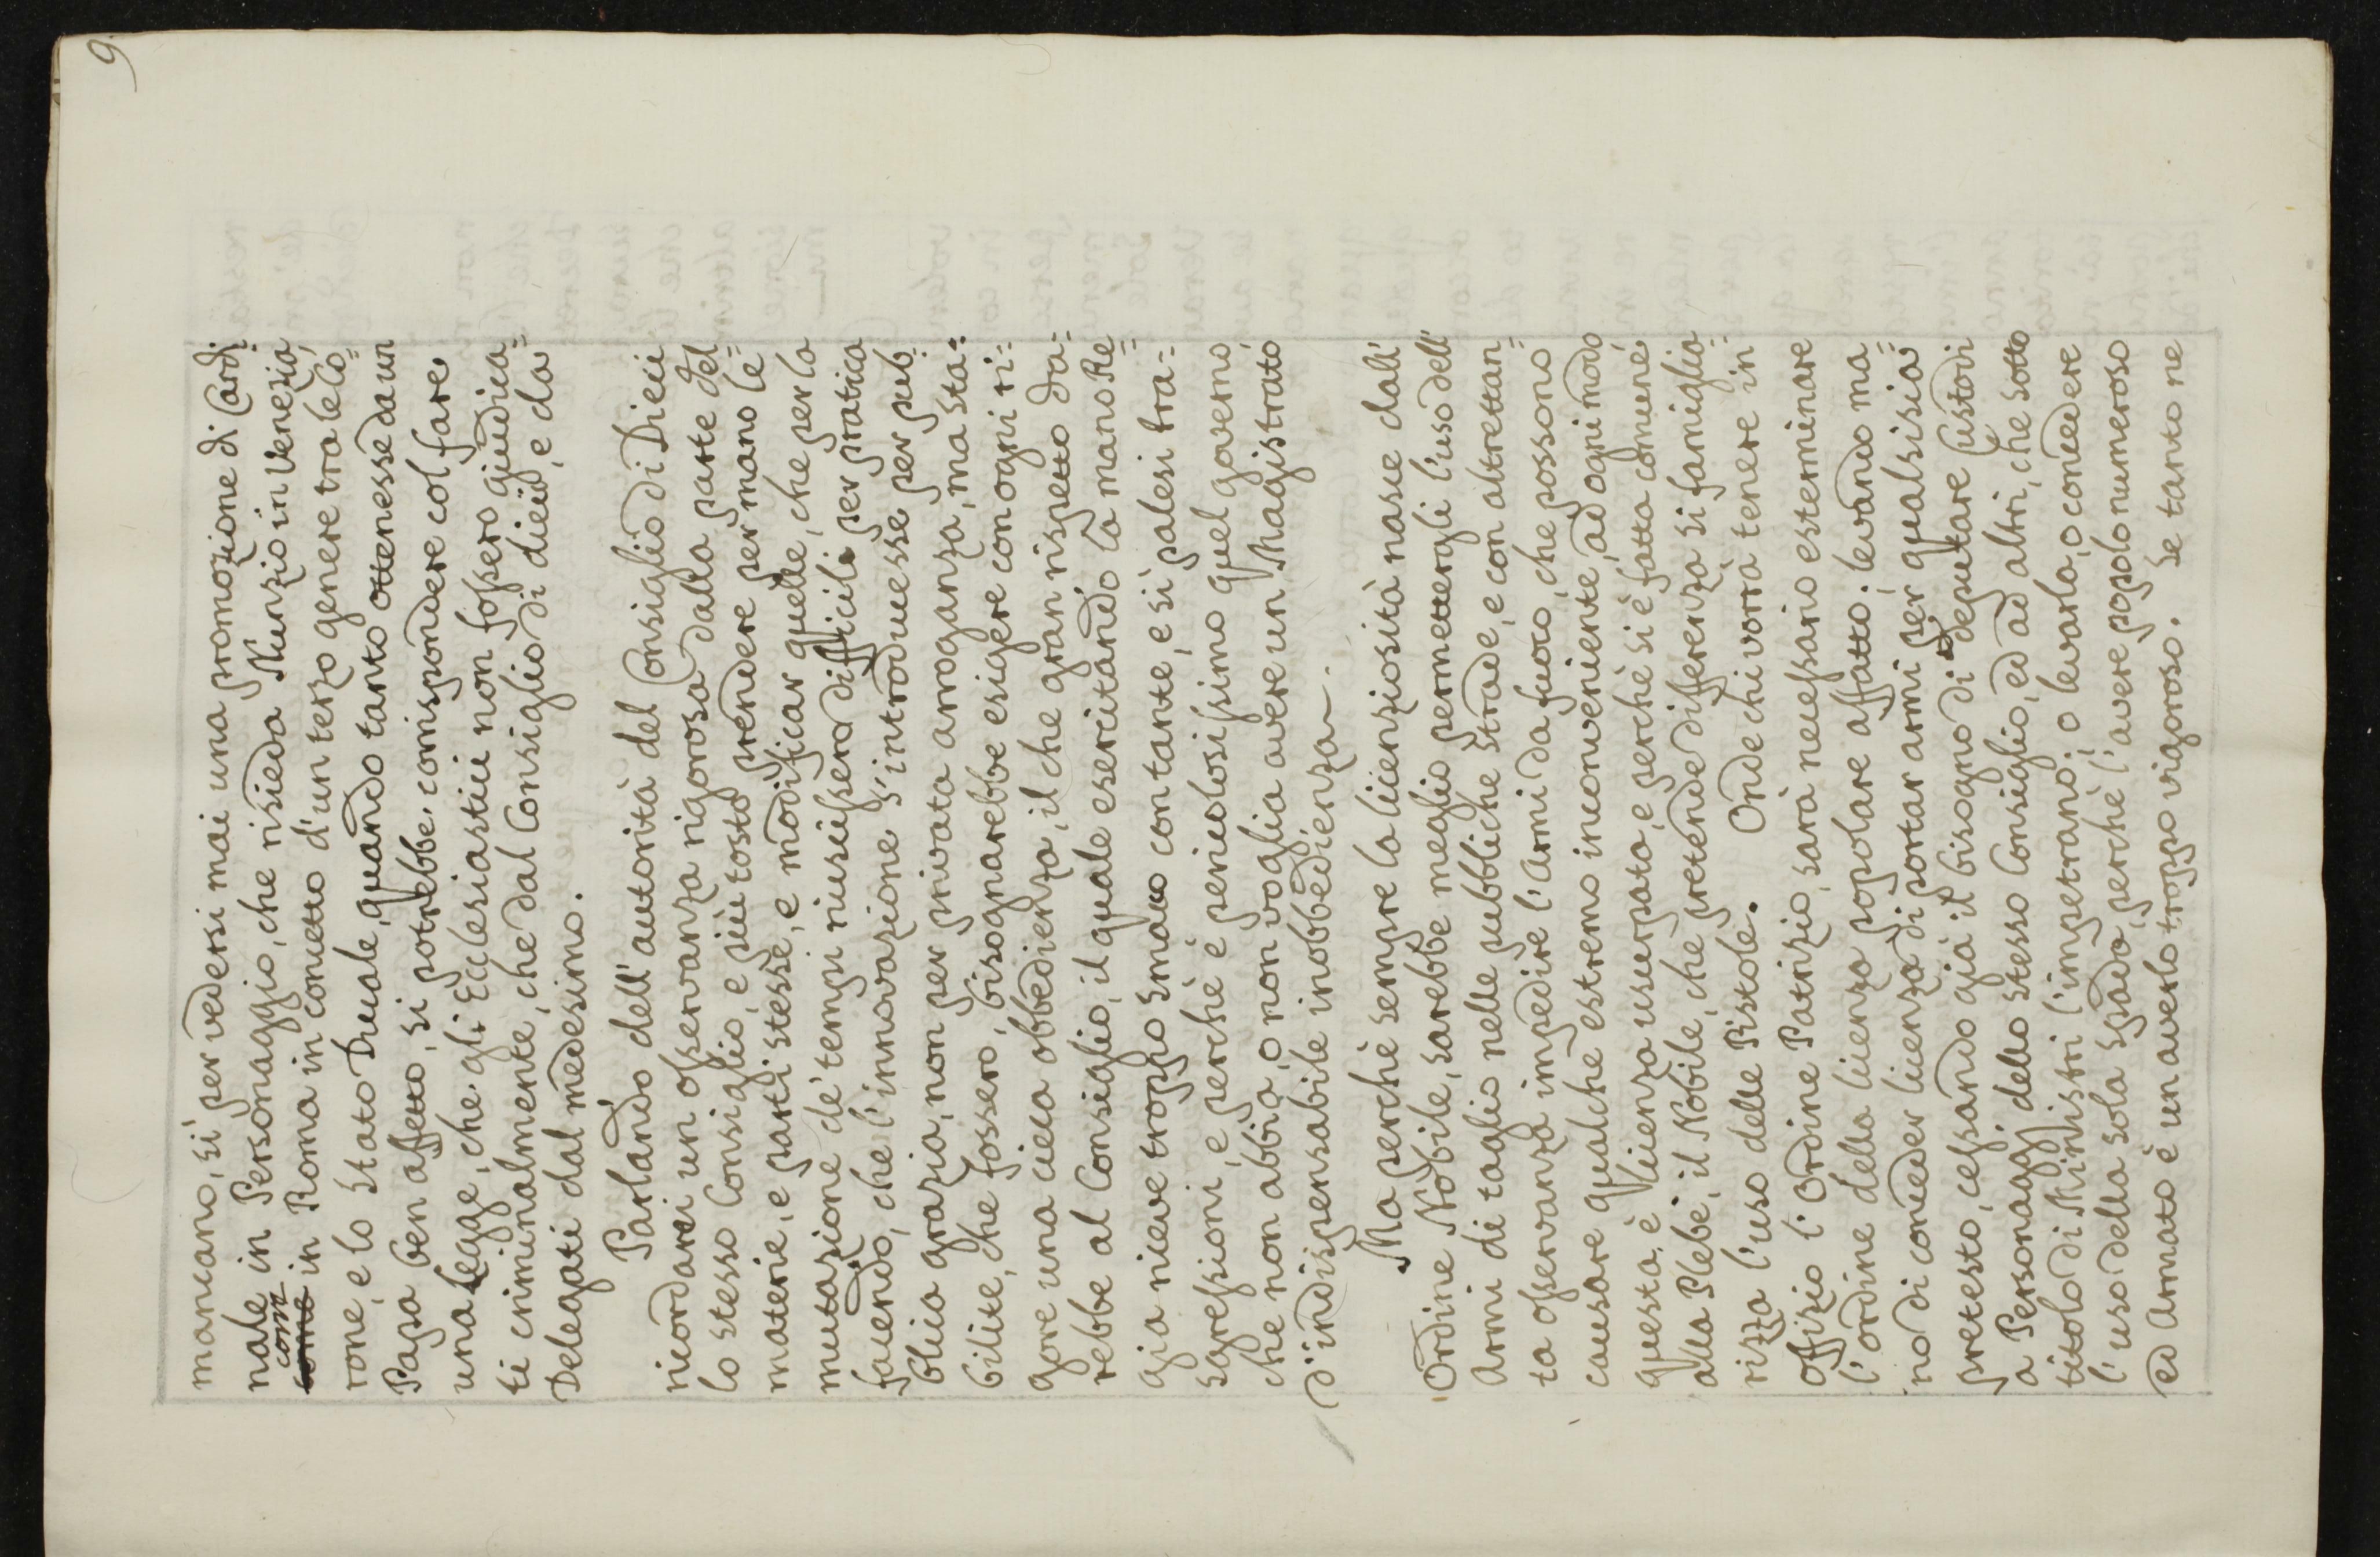 9.
mancano, sì per vedersi mai una promozione di Cardi=
nale in Personaggio, che risieda Nunzio in Venezia,
~~come~~ com'è in Roma in concetto d'un terzo genere tra le Co=
rone, e lo Stato Ducale, quando tanto ottenesse da un
Papa ben affetto, si potrebbe corrispondere col fare
una Legge, che gli Ecclesiastici non fossero giudica=
ti criminalmente, che dal Consiglio di dieci, e da
Delegati dal medesimo.
Parlando dell'auttorità del Consiglio di Dieci
ricordarei un osservanza rigorosa dalla parte del=
lo stesso Consiglio, e più tosto prendere per mano le
materie, e parti stesse, e modificar quelle, che per la
mutazione de' tempi riuscissero difficili per pratica
facendo, che l'innovazione s'introducesse per pub=
blica grazia, non per privata arroganza, ma sta=
bilite, che fossero, bisognarebbe esigere con ogni ri=
gore una cieca obbedienza, il che gran rispetto da=
rebbe al Consiglio, il quale esercitando la mano Re=
gia riceve troppo smacco con tante, e sì palesi tra=
sgressioni, e perchè è pericolosissimo quel governo,
che non abbia, o non voglia avere un Magistrato
d'indispensabile inobbedienza.
Ma perchè sempre la licenziosità nasce dall'
Ordine Nobile, sarebbe meglio permettergli l'uso dell'
Armi di taglio nelle pubbliche strade, e con altrettan=
ta osservanza impedire l'Armi da fuoco, che possono
causare qualche estremo inconveniente, ad ogni modo
questa è licenza usurpata, e perchè si è fatta comune
alla Plebe, il Nobile, che pretende differenza si famiglia=
rizza l'uso delle Pistole. Onde chi vorrà tenere in
offizio l'Ordine Patrizio, sarà necessario esterminare
l'ordine della licenza popolare affatto; levando ma=
no di conceder licenza di portar armi per qualsisia
pretesto, cessando già il bisogno di deputare Custodi
a Personaggi dello stesso Consiglio, ed ad altri, che sotto
tittolo di Ministri l'impetrano; o levarla, o concedere
l'uso della sola spada, perchè l'avere popolo numeroso
ed Armato è un averlo troppo vigoroso. Se tanto ne